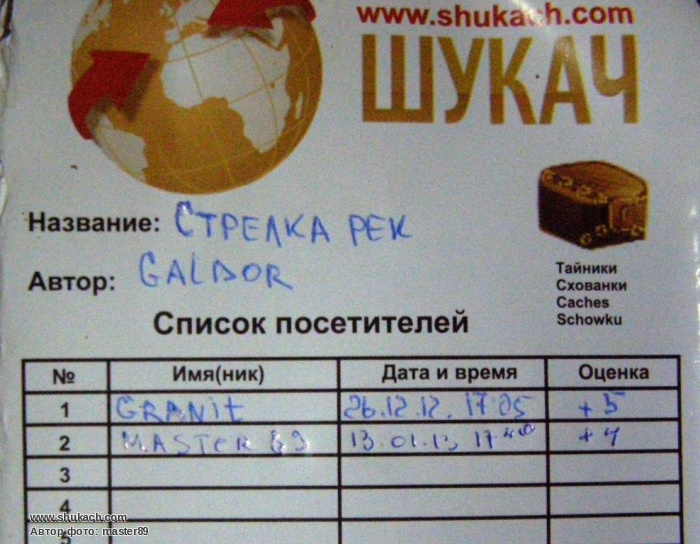 www.shukach.com
ШУКАЧ
Название: СТРЕЛКА РЕК
Автор: GALDOR
Тайники
Схованки
Caches
Schowku
Список посетителей
№ Имя(ник) Дата и время Оценка
1 GRANIT 26.12.12. 17:05 +5
2 MASTER 89 13.01.13 17 +4
3
4
5
www.shukach.com
Автор фото: master89